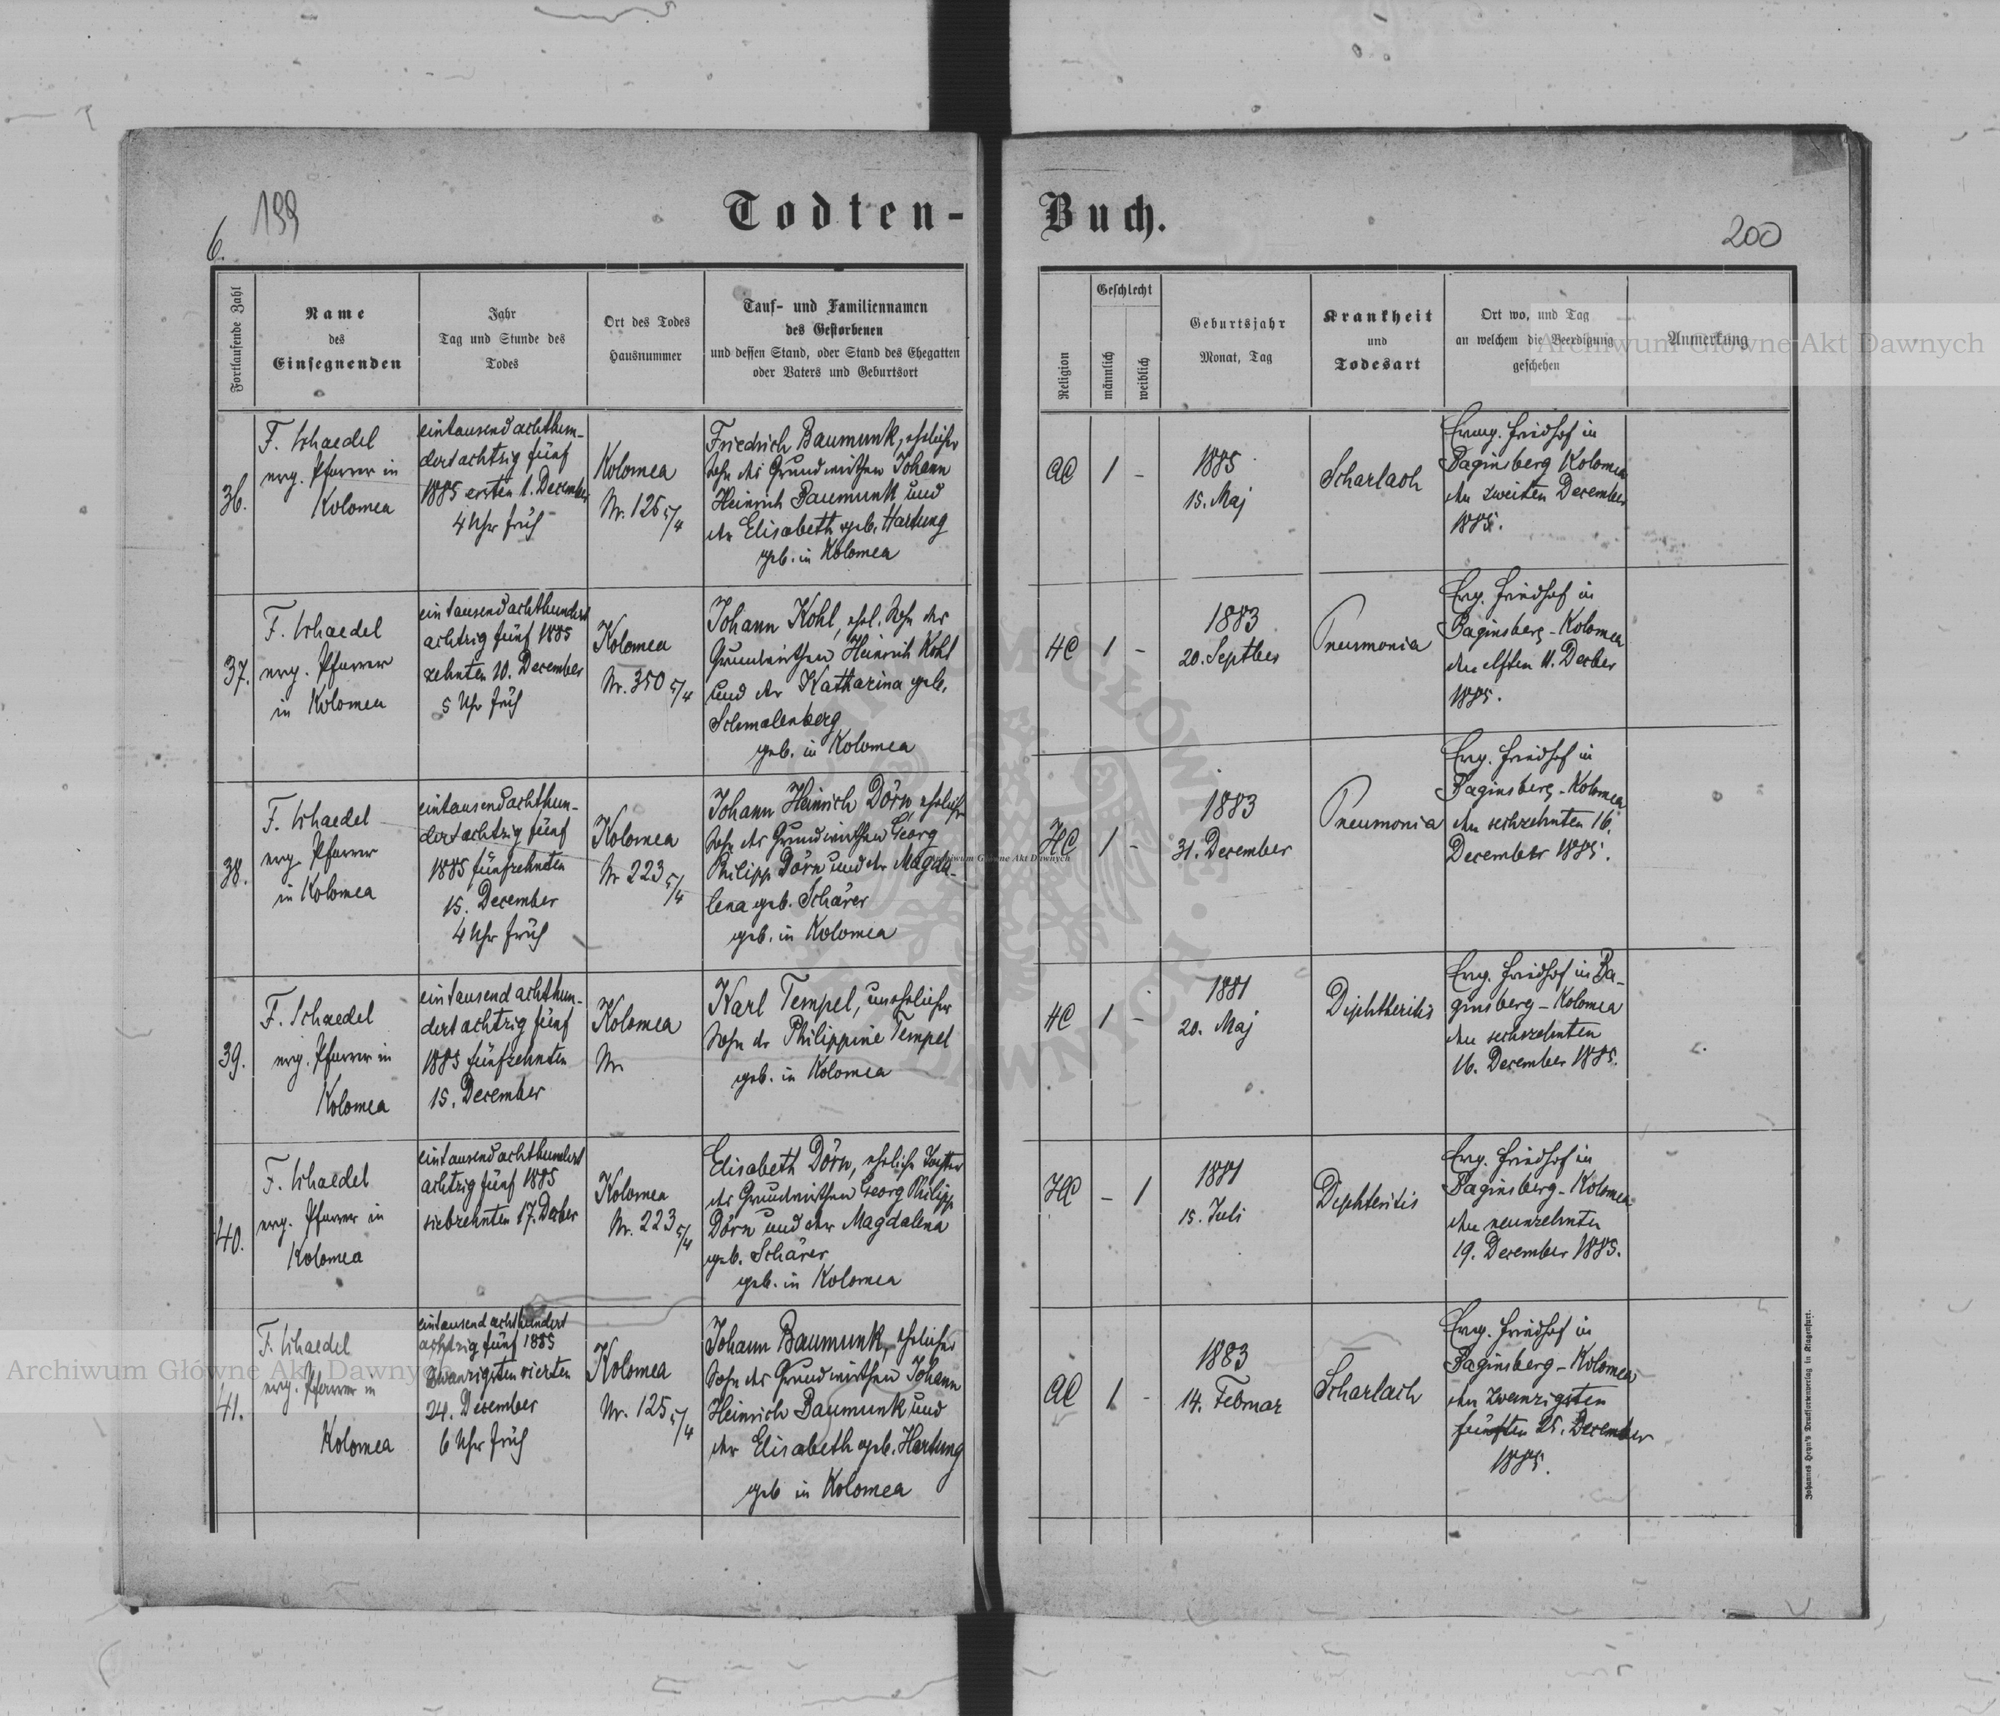 199
6.
Todten-
Buch.
200
Fortlaufende Zahl
Name
des
Einsegnenden
Jahr
Tag und Stunde des
Todes
Ort des Todes
Hausnummer
Tauf- und Familiennamen
des Gestorbenen
und dessen Stand, oder Stand des Ehegatten
oder Vaters und Geburtsort
Religion
Geschlecht
männlich
weiblich
Geburtsjahr
Monat, Tag
Krankheit
und
Todesart
Ort wo, und Tag
an welchem die Beerdigung
geschehen
Anmerkung
36.
F. Schaedel
evg. Pfarrer in
Kolomea
eintausend achthun-
dertachtzig fünf
1885 ersten 1. December
4 Uhr früh
Kolomea
Nr. 125 5/4
Friedrich Baumunk, ehelicher
Sohn des Grundwirthen Johann
Heinrich Baumunk und
der Elisabeth geb. Hartung
geb. in Kolomea
AC
1
-
1885
15. Maj
Scharlach
Evang. Friedhof in
Baginsberg Kolomea
den zweiten December
1885.
37.
F. Schaedel
evg. Pfarrer
in Kolomea
eintausendachthundert
achtzig fünf 1885
zehnten 10. December
5 Uhr früh
Kolomea
Nr. 350 5/4
Johann Kohl, ehel. Sohn des
Grundwirthen Heinrich Kohl
und der Katharina geb.
Schmalenberg
geb. in Kolomea
HC
1
-
1883
20. Septber
Pneumonia
Evg. Friedhof in
Baginsberg - Kolomea
den elften 11. Decber
1885.
38.
F. Schaedel
evg. Pfarrer
in Kolomea
eintausendachthun-
dertachtzig fünf
1885 fünfzehnten
15. December
4 Uhr früh
Kolomea
Nr 223 5/4
Johann Heinrich Dörn ehelicher
Sohn des Grundwirthen Georg
Philipp Dörn und der Magda-
lena geb. Schärer
geb. in Kolomea
HC
1
-
1883
31. December
Pneumonia
Evg. Friedhof in
Baginsberg - Kolomea
den sechzehnten 16.
December 1885.
39.
F. Schaedel
evg. Pfarrer in
Kolomea
eintausend achthun-
dertachtzig fünf
1885 fünfzehnten
15. December
Kolomea
Nr.
Karl Tempel, unehelicher
Sohn der Philippine Tempel
geb. in Kolomea
HC
1
-
1881
20. Maj
Diphtheritis
Evg. Friedhof in Ba-
ginsberg - Kolomea
den sechzehnten
16. December 1885.
40.
F. Schaedel
evg. Pfarrer in
Kolomea
eintausendachthundert
achtzig fünf 1885
siebzehnten 17. Decber
Kolomea
Nr. 223 5/4
Elisabeth Dörn, eheliche Tochter
des Grundwirthen Georg Philipp
Dörn und der Magdalena
geb. Schärer
geb. in Kolomea
HC
-
1
1881
15. Juli
Diphteritis
Evg. Friedhof in
Baginsberg - Kolomea
den neunzehnten
19. December 1885.
41.
F. Schaedel
evg. Pfarrer in
Kolomea
eintausend achthundert
achtzig fünf 1885
zwanzigsten vierten
24. December
6 Uhr früh
Kolomea
Nr. 125 5/4
Johann Baumunk, ehelicher
Sohn des Grundwirthen Johann
Heinrich Baumunk und
der Elisabeth geb. Hartung
geb in Kolomea
AC
1
-
1883
14. Februar
Scharlach
Evg. Friedhof in
Baginsberg - Kolomea
den zwanzigsten
fünften 25. December
1885.
Johannes Heyn's Drucksortenverlag in Klagenfurt.
Archiwum Główne Akt Dawnych
Archiwum Główne Akt Dawnych
Archiwum Główne Akt Dawnych